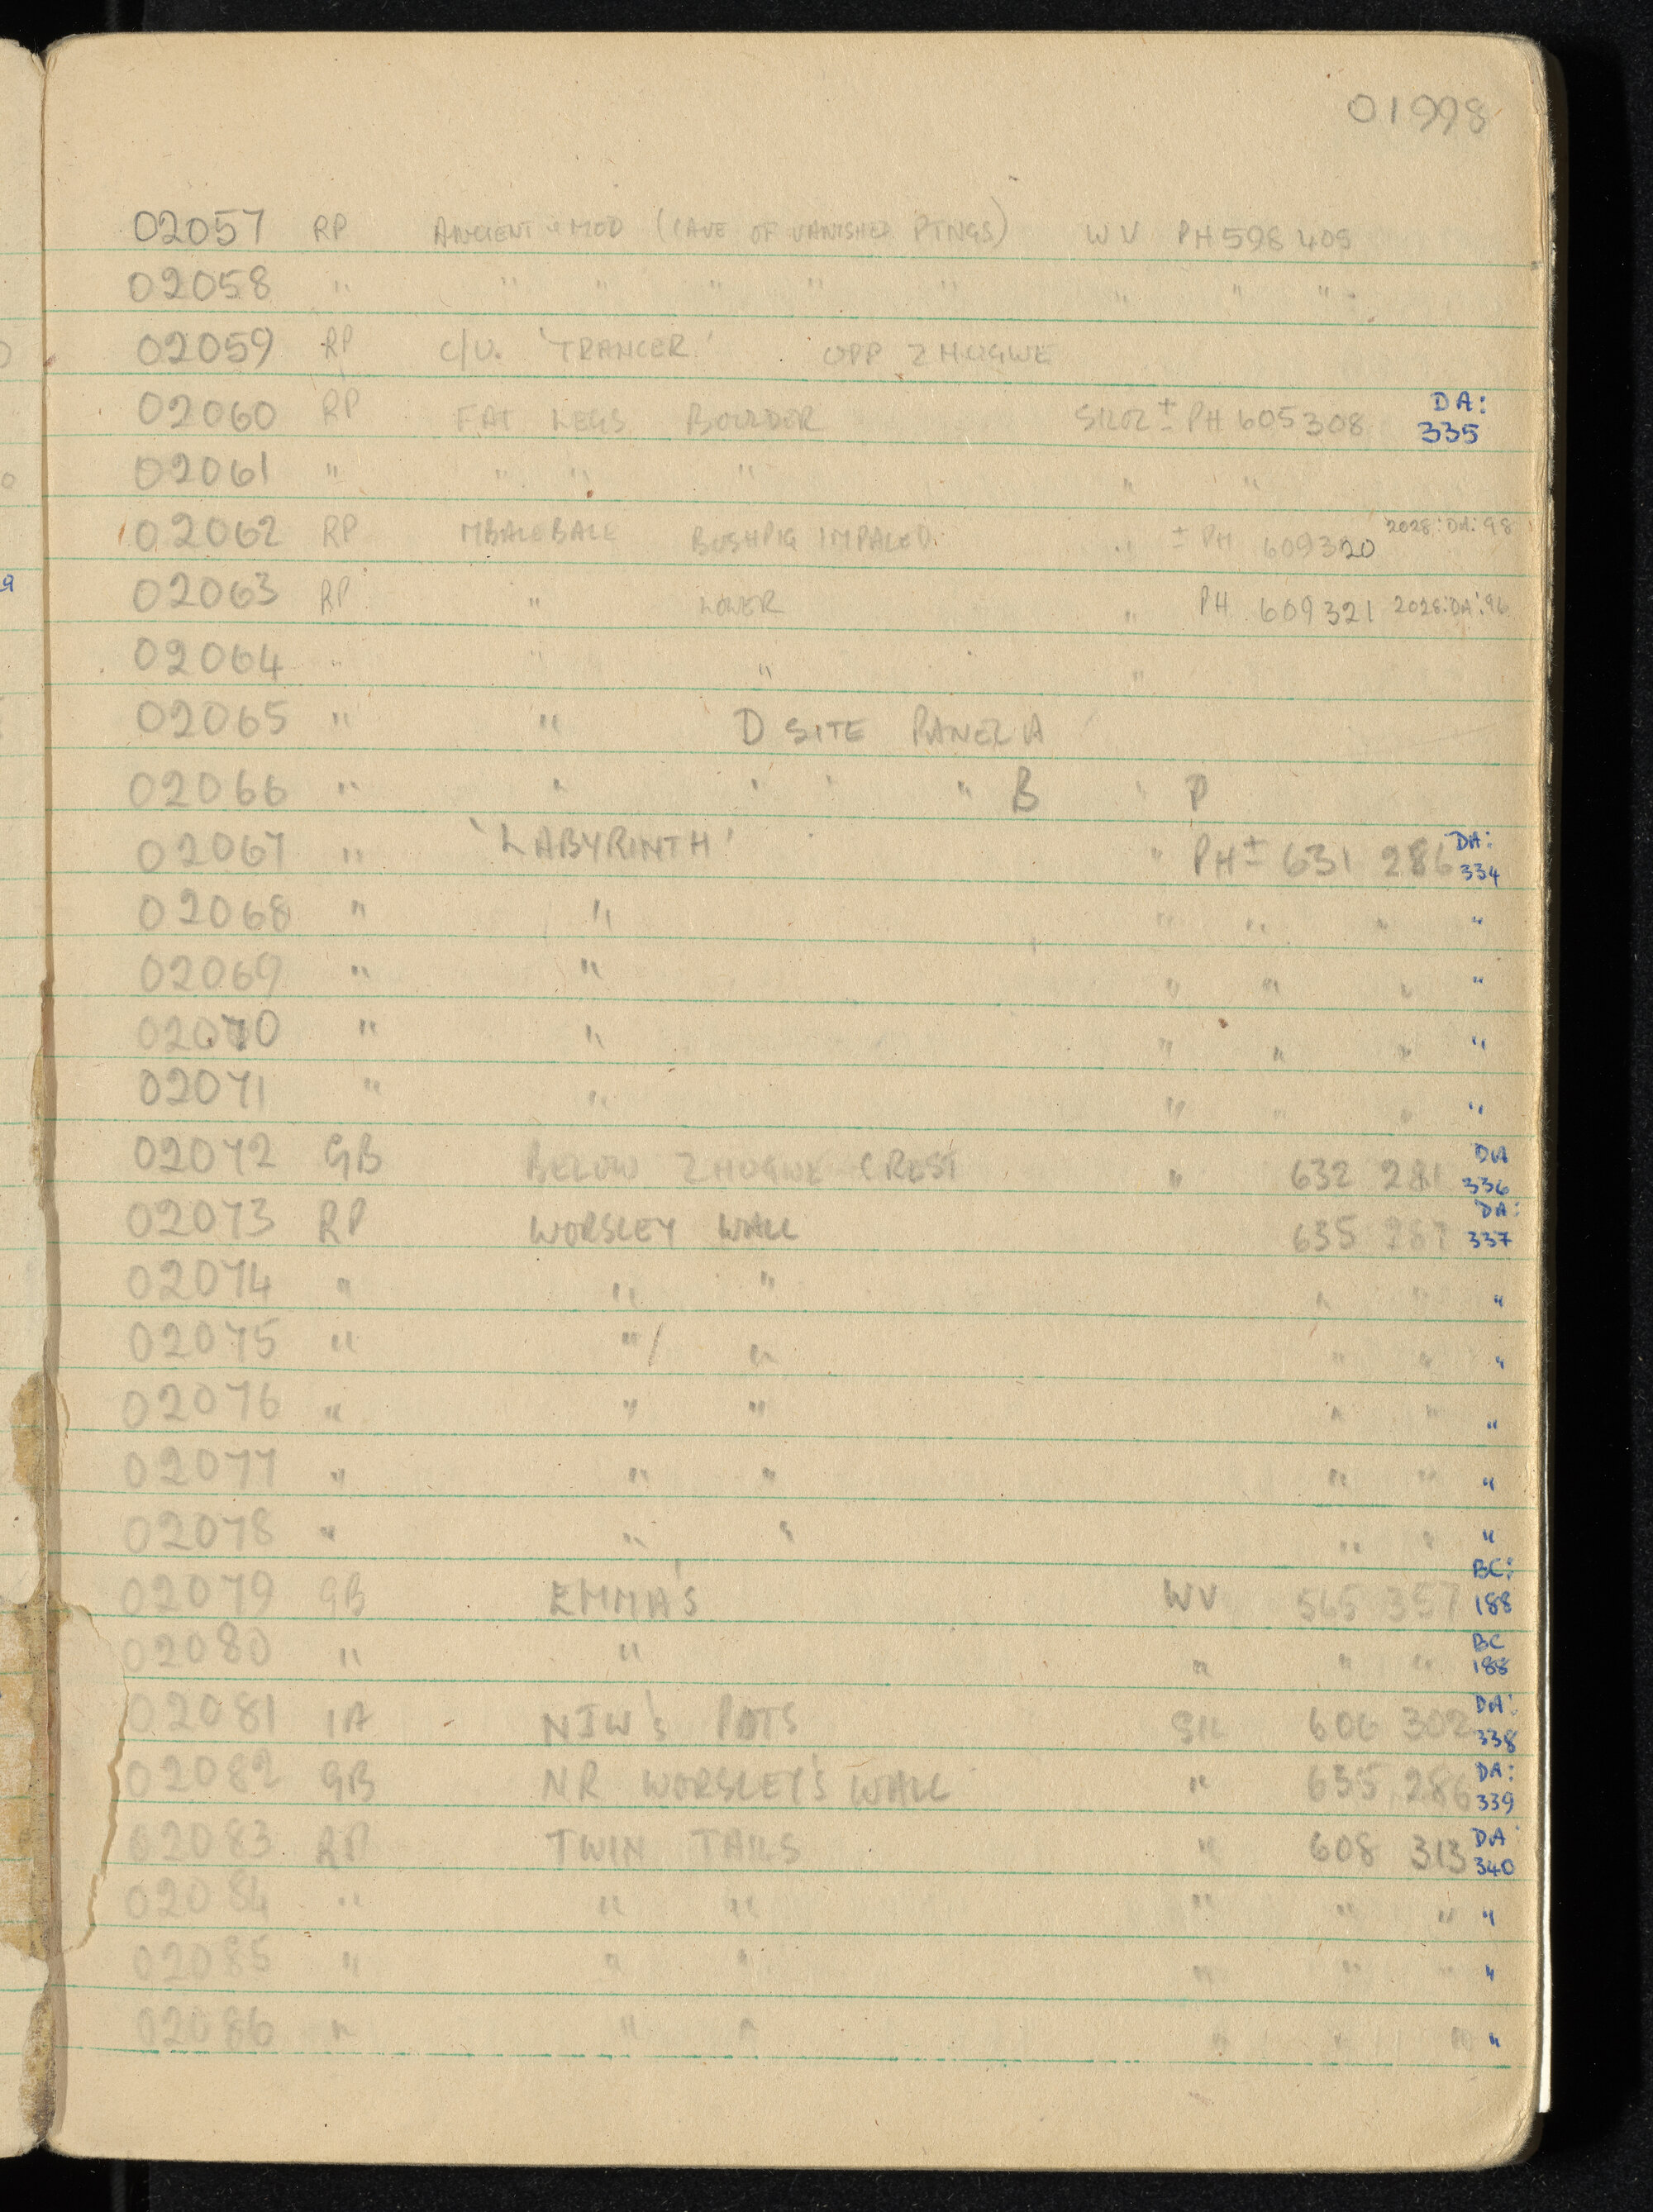 01998
02057 RP ANCIENT & MOD (CAVE OF VANISHED PTNGS) WV PH 598 409
02058 " " " " " " " " "
02059 RP C/U. 'TRANCER' OPP ZHOGWE
02060 RP FAT LEGS BOULDER ± PH 605308 DA: 335
02061 " " " " " "
02062 RP MBALEBALE BUSHPIG IMPALED. " ± PH 609320 2028:DA:98
02063 RP " LOWER " PH 609321 2028:DA:96
02064 " " " "
02065 " " D SITE PANEL A
02066 " " " " " B " P
02067 " 'LABYRINTH' " PH ± 631 286 DA: 334
02068 " " " " " "
02069 " " " " " "
02070 " " " " " "
02071 " " " " " "
02072 GB BELOW ZHOGWE CREST " 632 281 DA 336
02073 RP WORSLEY WALL 635 287 DA: 337
02074 " " " " " "
02075 " " / " " " "
02076 " " " " " "
02077 " " " " " "
02078 " " " " " "
02079 GB EMMA'S WV 565 357 BC: 188
02080 " " " " " BC 188
02081 IA NIW's POTS SK 606 302 DA: 338
02082 GB NR WORSLEY'S WALL " 635 286 DA: 339
02083 RP TWIN TAILS " 608 313 DA 340
02084 " " " " " " "
02085 " " " " " " "
02086 " " " " " " "